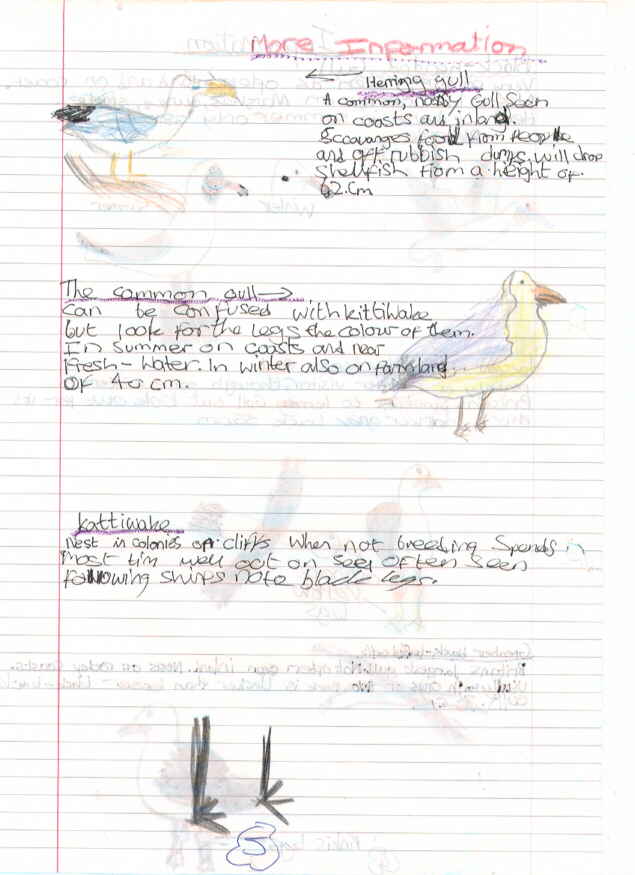 More Information
Herring gull
A common, noisy Gull Seen
on coasts and inland.
Scavanges food from People
and off rubbish dumps will drop
shellfish from a height of.
62.cm
The common gull
can be confused with kittiwake
but look for the legs the colour of them.
In Summer on coasts and near
Fresh-water. In winter also on farmland
OF 40 cm.
kattiwake
Nest in colonies on cliffs when not breeding Spends
most tim well out on Sea often seen
following ships note black legs.
5